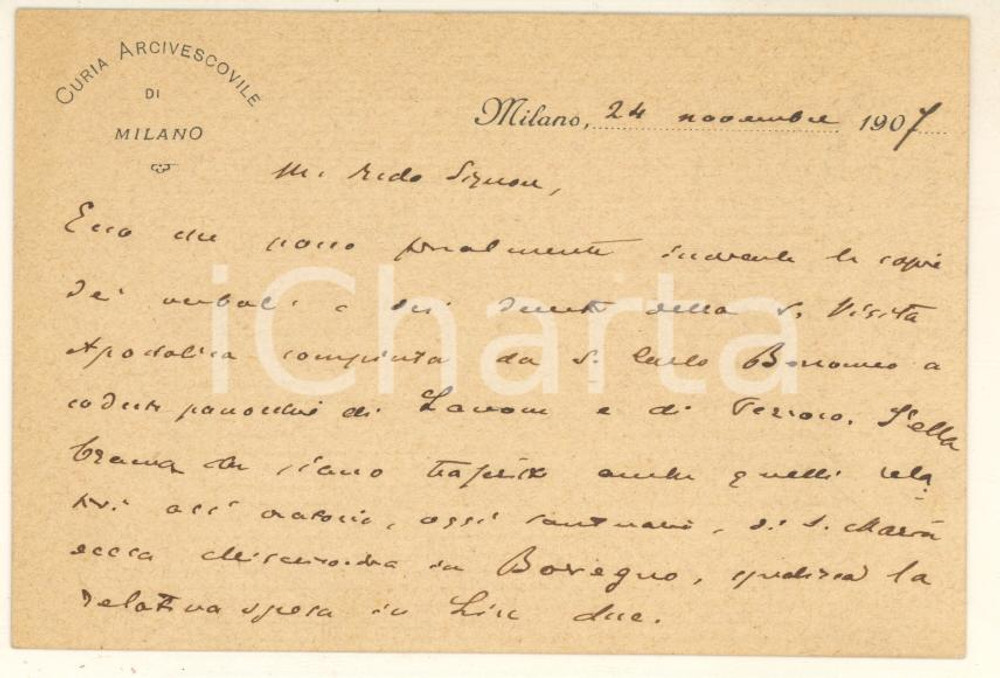 CURIA ARCIVESCOVILE
DI
MILANO
Milano, 24 novembre 1907
M. Redo Signore,
Ecco che posso finalmente inviarle le copie
de' verbali e dei decreti della S. Visita
Apostolica compiuta da S. Carlo Borromeo a
codeste parocchie di Lavone e di Pezzoro. S'ella
brama che siano trascritti anche quelli rela
tivi all' oratorio, oggi santuario, di S. Maria
della Misericordia in Bovegno, spedisca la
relativa spesa in Lire due.
iCharta